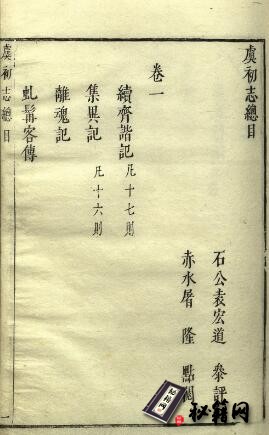 虞初志總目
石公袁宏道 參評
赤水屠 隆 點閱
卷一
續齊諧記 凡十七則
集異記 凡十六則
離魂記
虬髯客傳
虞初志總目
一
秘籍网